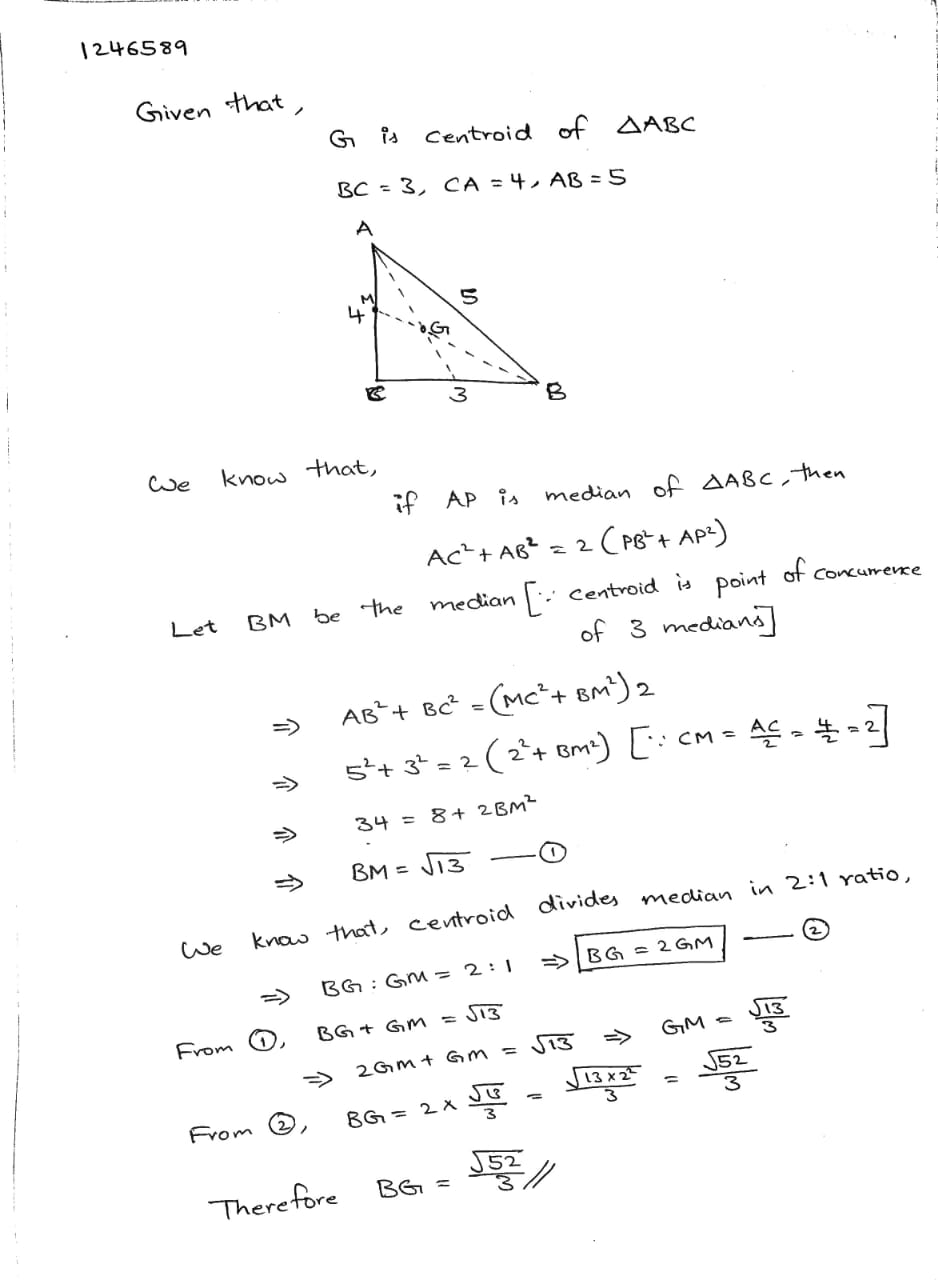 1246589
Given that,
G is centroid of △ABC
BC = 3, CA = 4, AB = 5
A
M
5
4
G
C
3
B
We know that,
if AP is median of △ABC, then
AC² + AB² = 2 (PB² + AP²)
Let BM be the median [∵ centroid is point of concurrence
of 3 medians]
⇒ AB² + BC² = (MC² + BM²) 2
⇒ 5² + 3² = 2 (2² + BM²) [∵ CM = AC/2 = 4/2 = 2]
⇒ 34 = 8 + 2BM²
⇒ BM = √13 — ①
We know that, centroid divides median in 2:1 ratio,
⇒ BG : GM = 2 : 1 ⇒ BG = 2GM — ②
From ①, BG + GM = √13
⇒ 2GM + GM = √13 ⇒ GM = √13/3
From ②, BG = 2 × √13/3 = √13×2²/3 = √52/3
Therefore BG = √52/3 //